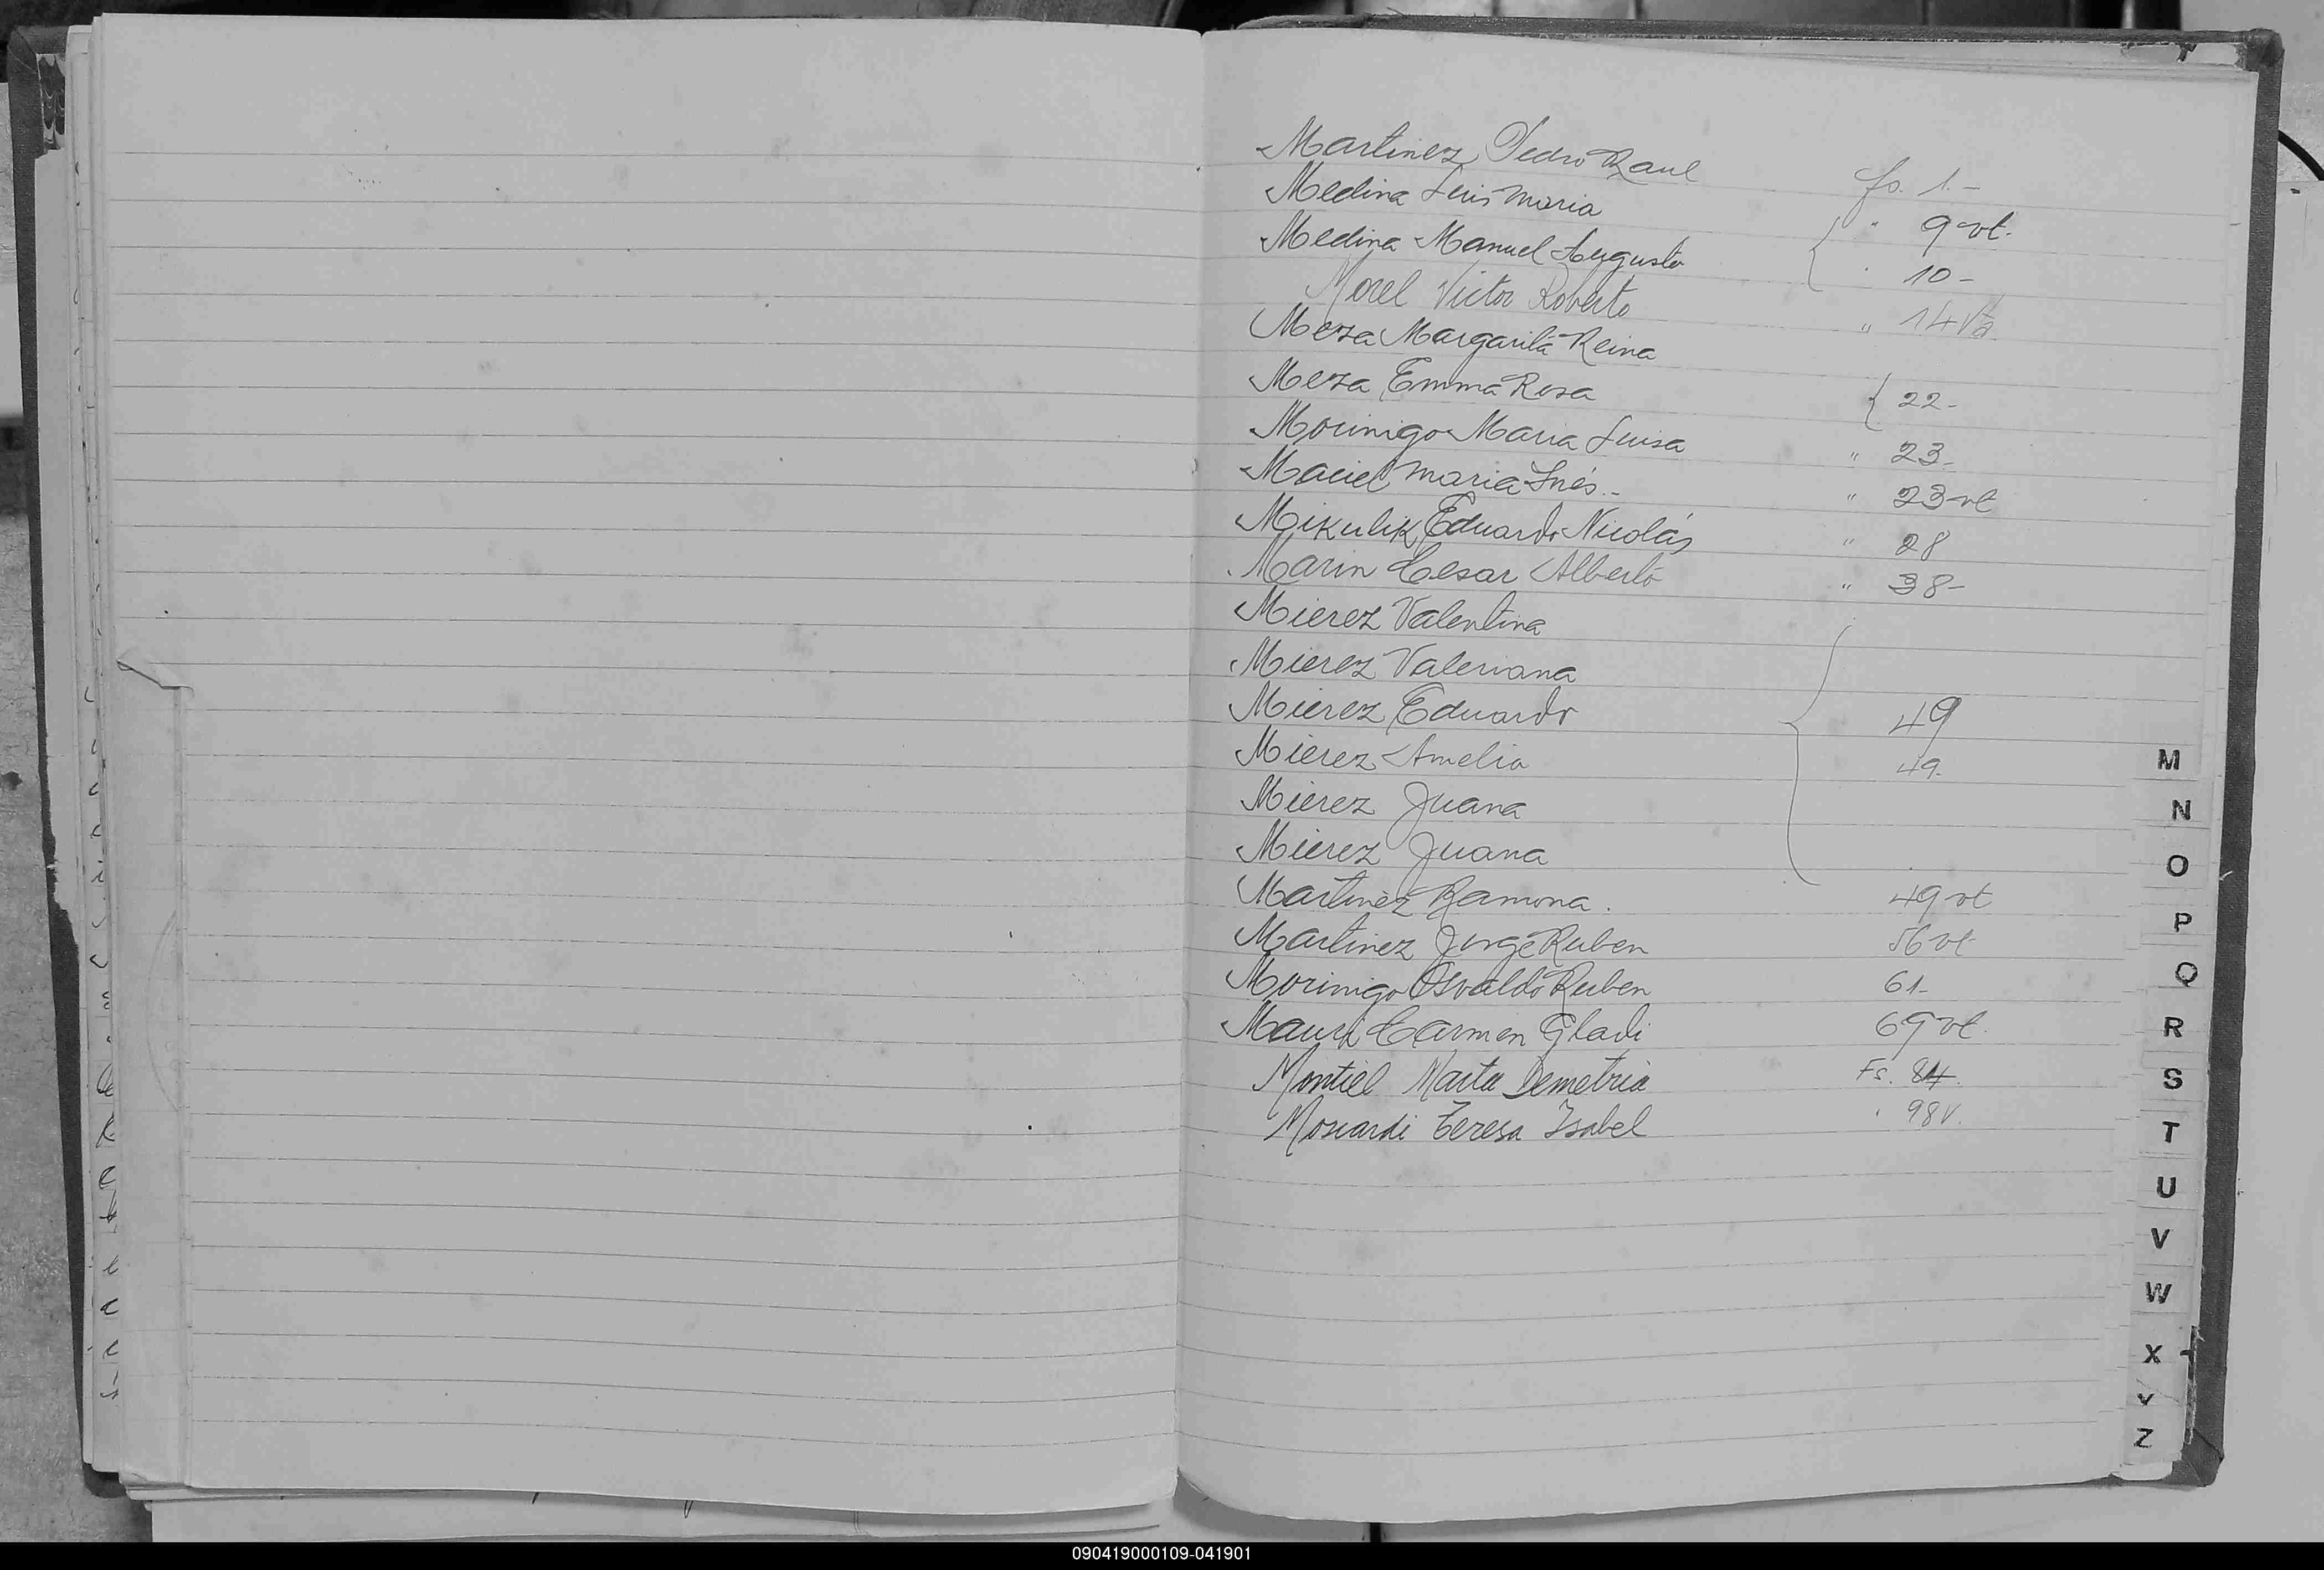 Martinez Pedro Raul fs. 1.-
Medina Luis Maria " 9 vt.
Medina Manuel Augusto " 10-
Morel Victor Roberto " 14 Vta.
Meza Margarita Reina
Meza Emma Rosa 22-
Morinigo Maria Luisa " 23-
Maciel Maria Inés.- " 23 vt
Mikulik Eduardo Nicolás " 28
Marin Cesar Alberto " 38-
Mierez Valentina
Mierez Valeriana
Mierez Eduardo 49
Mierez Amelia 49.
Mierez Juana
Mierez Juana
Martinez Ramona. 49 vt
Martinez Jorge Ruben 56 vt
Morinigo Osvaldo Ruben 61-
Carmen Gladi 69 vt.
Montiel Marta Demetria Fs. 84.
Moscardi Teresa Isabel " 98 V.
M
N
O
P
Q
R
S
T
U
V
W
X
Y
Z
090419000109-041901